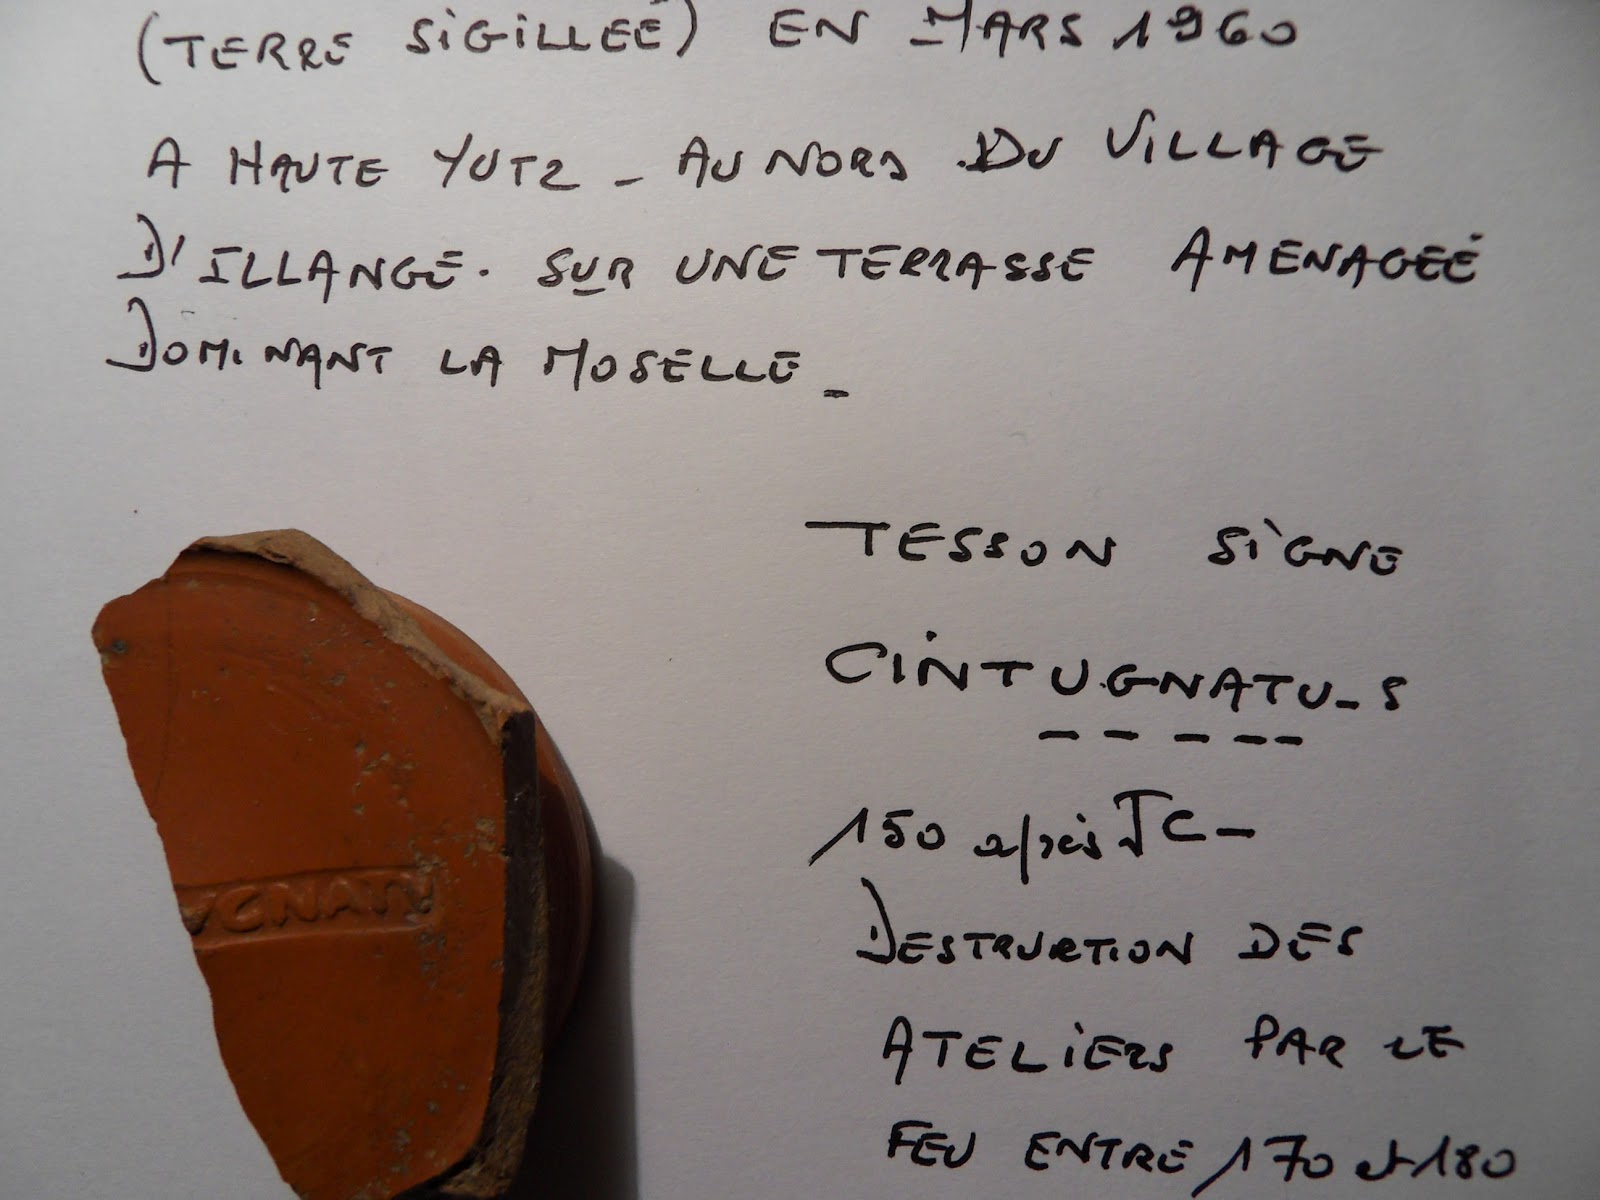 (TERRE SIGILLEÉ) EN MARS 1960
A HAUTE YUTZ - AU NORD DU VILLAGE
D'ILLANGE. SUR UNE TERRASSE AMENAGEÉ
DOMINANT LA MOSELLE -
TESSON SIGNE
CINTUGNATU-S
150 après JC -
DESTRUCTION DES
ATELIERS PAR LE
FEU ENTRE 170 et 180
UGNATV